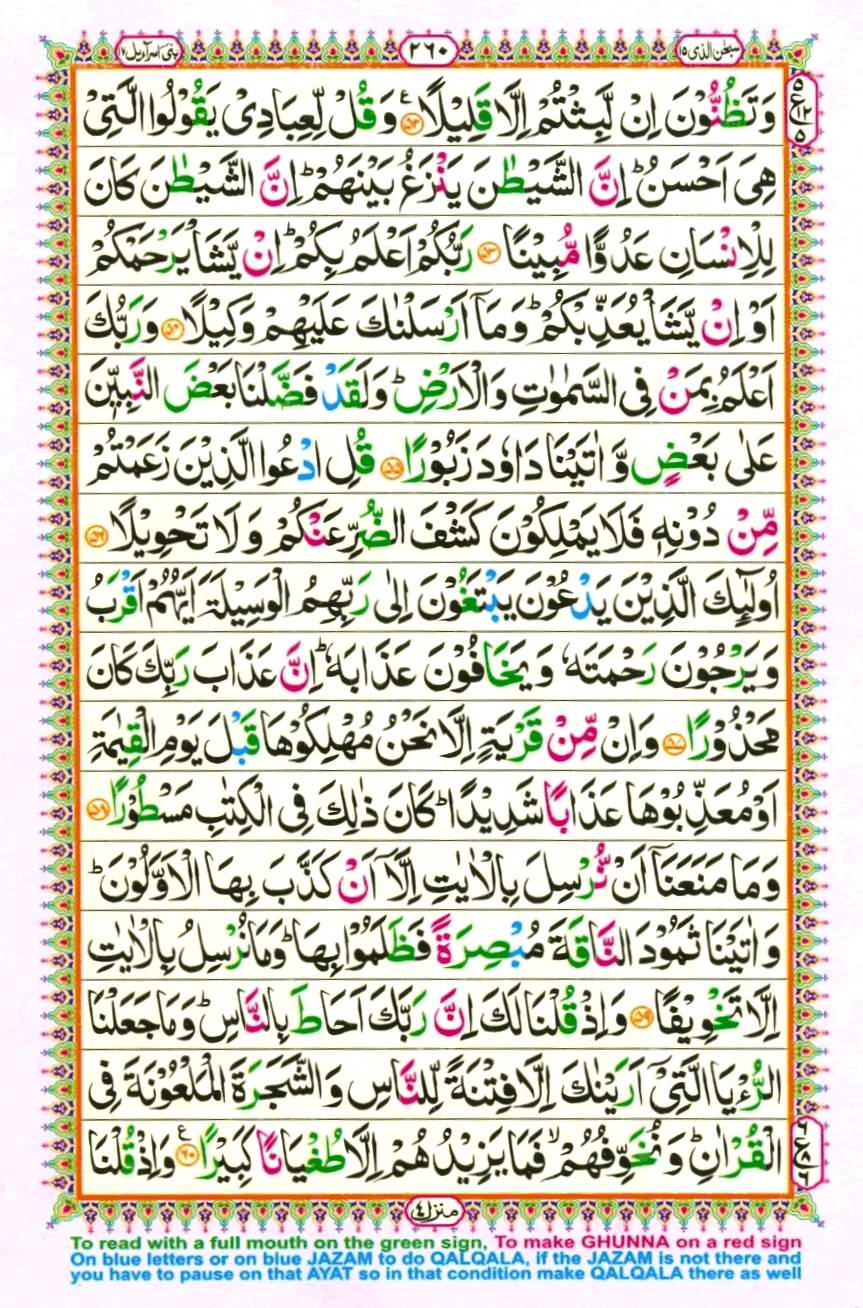 سبحٰن الذی ١٥
٢٦٠
بنی اسرآءیل ١٧
وَتَظُنُّوۡنَ اِنۡ لَّبِثۡتُمۡ اِلَّا قَلِيۡلًا ﴿٥٢﴾ وَقُلْ لِّعِبَادِىۡ يَقُوۡلُوا الَّتِىۡ
هِىَ اَحۡسَنُ‌ؕ اِنَّ الشَّيۡطٰنَ يَنۡزَغُ بَيۡنَهُمۡ‌ؕ اِنَّ الشَّيۡطٰنَ كَانَ
لِلۡاِنۡسَانِ عَدُوًّا مُّبِيۡنًا ﴿٥٣﴾ رَبُّكُمۡ اَعۡلَمُ بِكُمۡ‌ؕ اِنۡ يَّشَاۡ يَرۡحَمۡكُمۡ
اَوۡ اِنۡ يَّشَاۡ يُعَذِّبۡكُمۡ‌ؕ وَمَاۤ اَرۡسَلۡنٰكَ عَلَيۡهِمۡ وَكِيۡلًا ﴿٥٤﴾ وَرَبُّكَ
اَعۡلَمُ بِمَنۡ فِى السَّمٰوٰتِ وَالۡاَرۡضِ‌ؕ وَلَقَدۡ فَضَّلۡنَا بَعۡضَ النَّبِيّٖنَ
عَلٰى بَعۡضٍ وَّاٰتَيۡنَا دَاوٗدَ زَبُوۡرًا ﴿٥٥﴾ قُلِ ادۡعُوا الَّذِيۡنَ زَعَمۡتُمۡ
مِّنۡ دُوۡنِهٖ فَلَا يَمۡلِكُوۡنَ كَشۡفَ الضُّرِّ عَنۡكُمۡ وَلَا تَحۡوِيۡلًا ﴿٥٦﴾
اُولٰٓٮِٕكَ الَّذِيۡنَ يَدۡعُوۡنَ يَبۡتَغُوۡنَ اِلٰى رَبِّهِمُ الۡوَسِيۡلَةَ اَيُّهُمۡ اَقۡرَبُ
وَيَرۡجُوۡنَ رَحۡمَتَهٗ وَيَخَافُوۡنَ عَذَابَهٗؕ اِنَّ عَذَابَ رَبِّكَ كَانَ
مَحۡذُوۡرًا ﴿٥٧﴾ وَاِنۡ مِّنۡ قَرۡيَةٍ اِلَّا نَحۡنُ مُهۡلِكُوۡهَا قَبۡلَ يَوۡمِ الۡقِيٰمَةِ
اَوۡ مُعَذِّبُوۡهَا عَذَابًا شَدِيۡدًا‌ؕ كَانَ ذٰلِكَ فِى الۡكِتٰبِ مَسۡطُوۡرًا ﴿٥٨﴾
وَمَا مَنَعَنَاۤ اَنۡ نُّرۡسِلَ بِالۡاٰيٰتِ اِلَّاۤ اَنۡ كَذَّبَ بِهَا الۡاَوَّلُوۡنَ‌ؕ
وَاٰتَيۡنَا ثَمُوۡدَ النَّاقَةَ مُبۡصِرَةً فَظَلَمُوۡا بِهَا‌ؕ وَمَا نُرۡسِلُ بِالۡاٰيٰتِ
اِلَّا تَخۡوِيۡفًا ﴿٥٩﴾ وَاِذۡ قُلۡنَا لَكَ اِنَّ رَبَّكَ اَحَاطَ بِالنَّاسِ‌ؕ وَمَا جَعَلۡنَا
الرُّءۡيَا الَّتِىۡۤ اَرَيۡنٰكَ اِلَّا فِتۡنَةً لِّلنَّاسِ وَالشَّجَرَةَ الۡمَلۡعُوۡنَةَ فِى
الۡقُرۡاٰنِ‌ؕ وَنُخَوِّفُهُمۡۙ فَمَا يَزِيۡدُهُمۡ اِلَّا طُغۡيَانًا كَبِيۡرًا ﴿٦٠﴾ وَاِذۡ قُلۡنَا
منزل٤
To read with a full mouth on the green sign, To make GHUNNA on a red sign
On blue letters or on blue JAZAM to do QALQALA, if the JAZAM is not there and
you have to pause on that AYAT so in that condition make QALQALA there as well